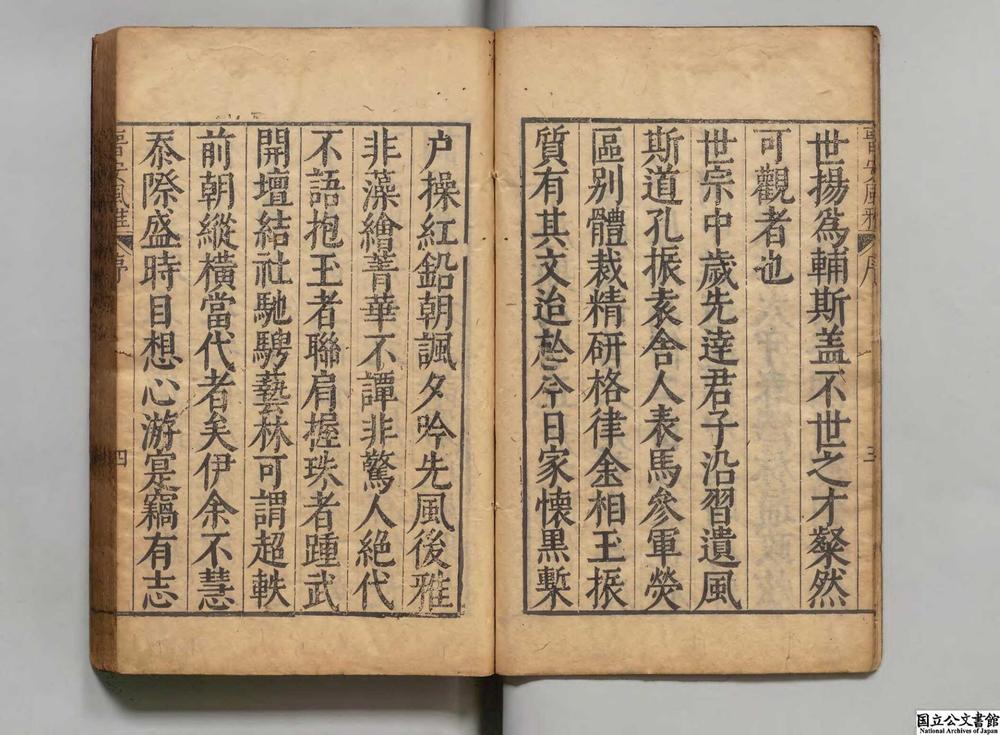 世揚為輔斯盖不世之才粲然
可觀者也
世宗中歲先達君子沿習遺風
斯道孔振袁舍人表馬參軍熒
區别體裁精研格律金相玉振
質有其文迨於今日家懷黒槧
户操紅鉛朝諷夕吟先風後雅
非藻繪菁華不譚非驚人絶代
不語抱玉者聯肩握珠者踵武
開壇結社馳騁藝林可謂超軼
前朝縱橫當代者矣伊余不慧
泰際盛時目想心游寔竊有志
風雅
序
四
国立公文書館
National Archives of Japan